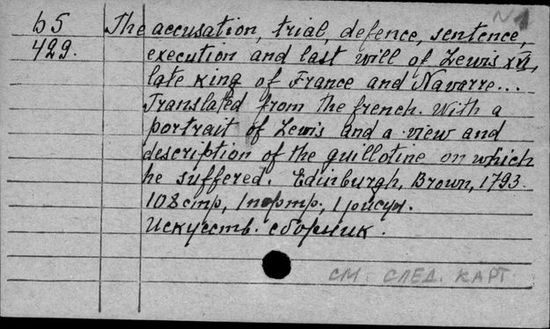 N1
б5
429.
The accusation, trial, defence, sentence,
execution and last will of Lewis XVI,
late king of France and Navarre...
Translated from the french. With a
portrait of Lewis and a view and
description of the guillotine on which
he suffered. Edinburgh, Brown, 1793.
108 стр, 1 портр, 1 рисун.
Искусств. сборник.
СМ. СЛЕД. КАРТ